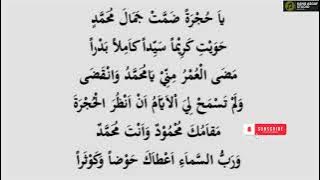 ياَ حُجْرَةً ضَمَّتْ جَمَالَ مُحَمَّدٍ
حَوَيْتِ كَرِيْمًا سَيِّدًا كَامِلاً بَدْرًا
مَضَى الْعُمْرُ مِنِّيْ يَامُحَمَّدُ وَانْقَضَى
وَلَمْ تَسْمَحْ لِيَ اْلاَيَامُ اَنْ اَنْظُرَ الْحُجْرَةَ
مَقَامُكَ مَحْمُوْدٌ وَاَنْتَ مُحَمَّدٌ
SUBSCRIBE
وَرَبُّ السَّمَاءِ اَعْطَاكَ حَوْضًا وَكَوْثَرًا